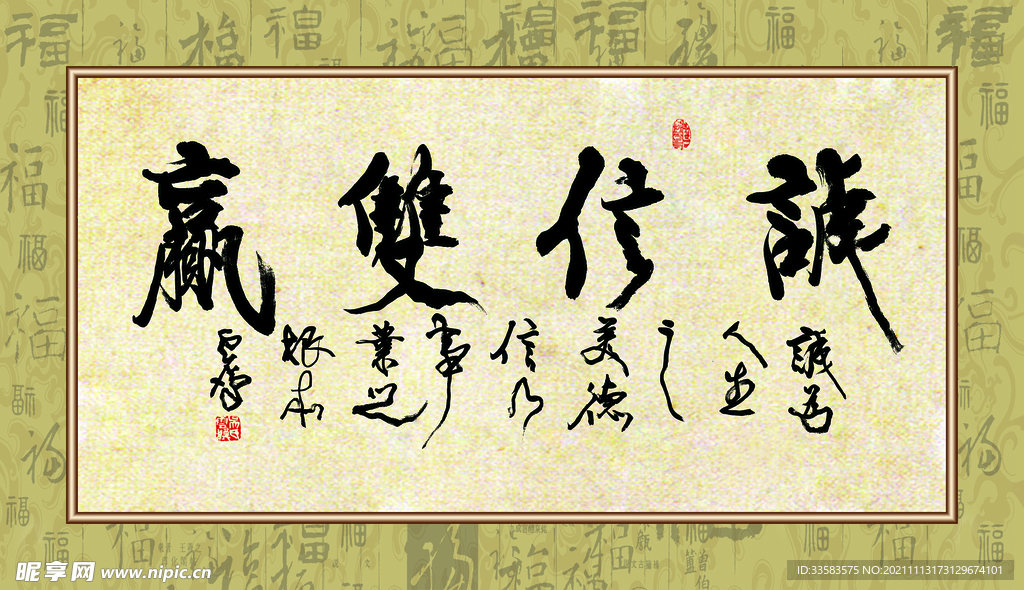 誠信雙贏
誠為
人生
之
美德
信乃
事
業之
根本
昵享网 www.nipic.cn
ID:33583575 NO:20211113173129674101